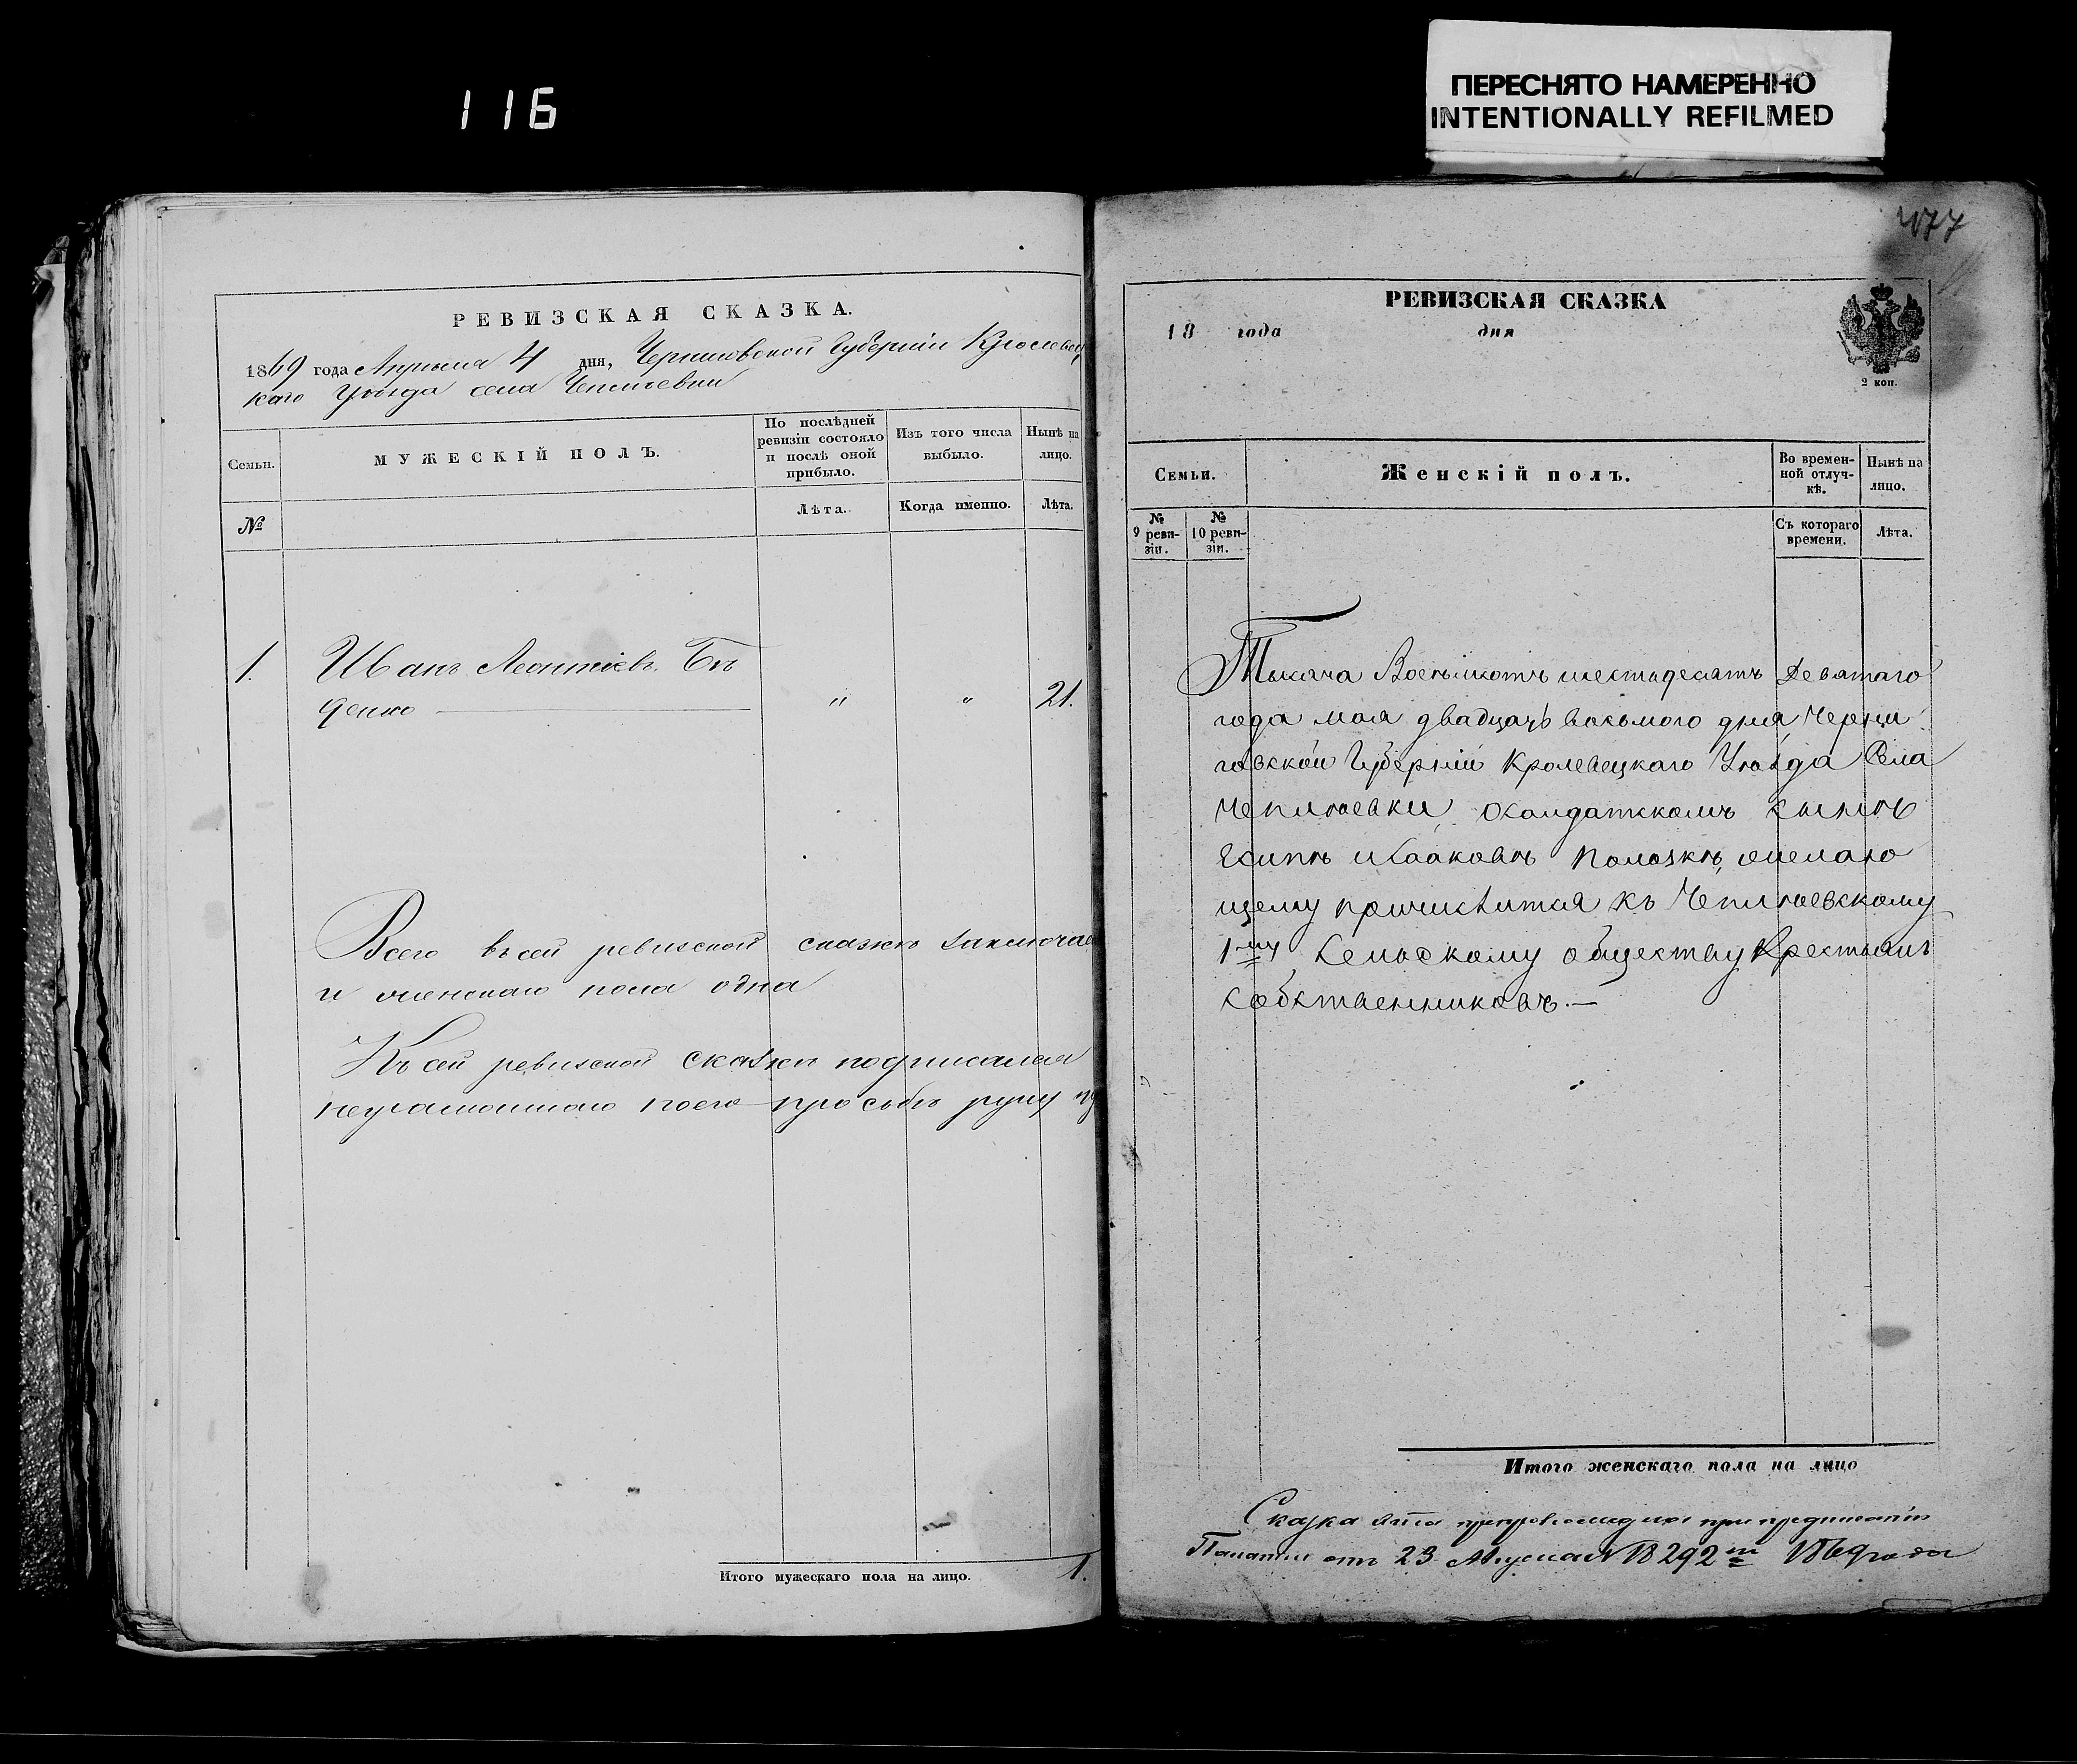 116
ПЕРЕСНЯТО НАМЕРЕННО
INTENTIONALLY REFILMED
РЕВИЗСКАЯ СКАЗКА.
1869 года Апрѣля 4 дня, Черниговской Губерніи Кролевец
каго Уѣзда села Чепліевки
Семьи.
МУЖЕСКІЙ ПОЛЪ.
По послѣдней ревизіи состояло и послѣ оной прибыло.
Изъ того числа выбыло.
Нынѣ на лицо.
№
Лѣта.
Когда именно.
Лѣта.
1. Иванъ Леонтіевъ Бѣ
денко " " 21.
Всего въ сей ревизской сказкѣ заключае
и женскаго пола одна
Къ сей ревизской сказкѣ подписался
неграмотнаго по его просьбѣ руку
Итого мужескаго пола на лицо. 1.
477
РЕВИЗСКАЯ СКАЗКА
18 года дня
2 коп.
Семьи.
Женскій полъ.
Во времен-ной отлуч-кѣ.
Нынѣ на лицо.
№ 9 реви-зіи.
№ 10 реви-зіи.
Съ котораго времени.
Лѣта.
Тысяча Восѣмсотъ шестьдесятъ девятаго
года мая двадцать восьмого дня Черни
говской Губерніи Кролевецкаго Уѣзда Села
Чеплѣевки, осолдатскомъ сынѣ
Есипѣ Исааковѣ Помозкѣ, желаю
щему причислится къ Чеплѣевскому
1му Сельскому обществу Крестьянъ
собственниковъ.—
Итого женскаго пола на лицо
Сказка эта препровождена при предписаніи
Палаты отъ 23 Августа № 18292 1869 года